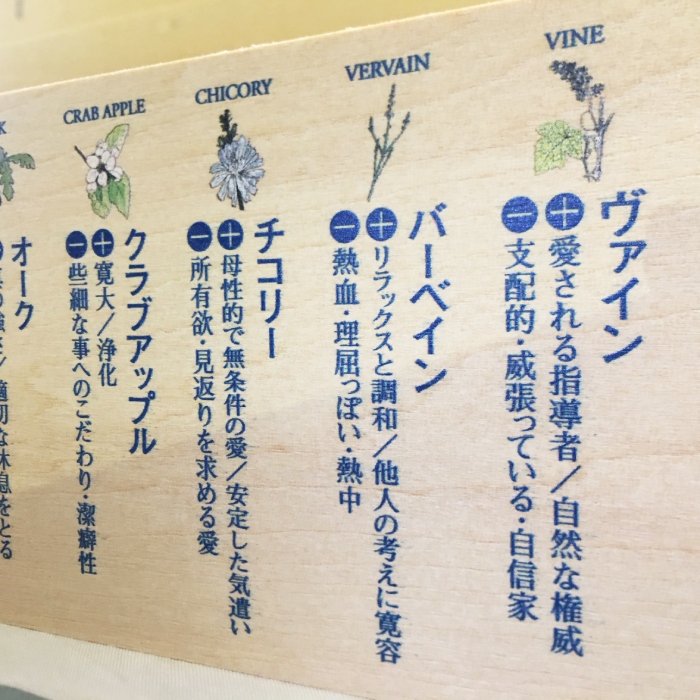 VINE
ヴァイン
+愛される指導者／自然な権威
−支配的・威張っている・自信家
VERVAIN
バーベイン
+リラックスと調和／他人の考えに寛容
−熱血・理屈っぽい・熱中
CHICORY
チコリー
+母性的で無条件の愛／安定した気遣い
−所有欲・見返りを求める愛
CRAB APPLE
クラブアップル
+寛大／浄化
−些細な事へのこだわり・潔癖性
K
オーク
強さ／適切な休息をとる